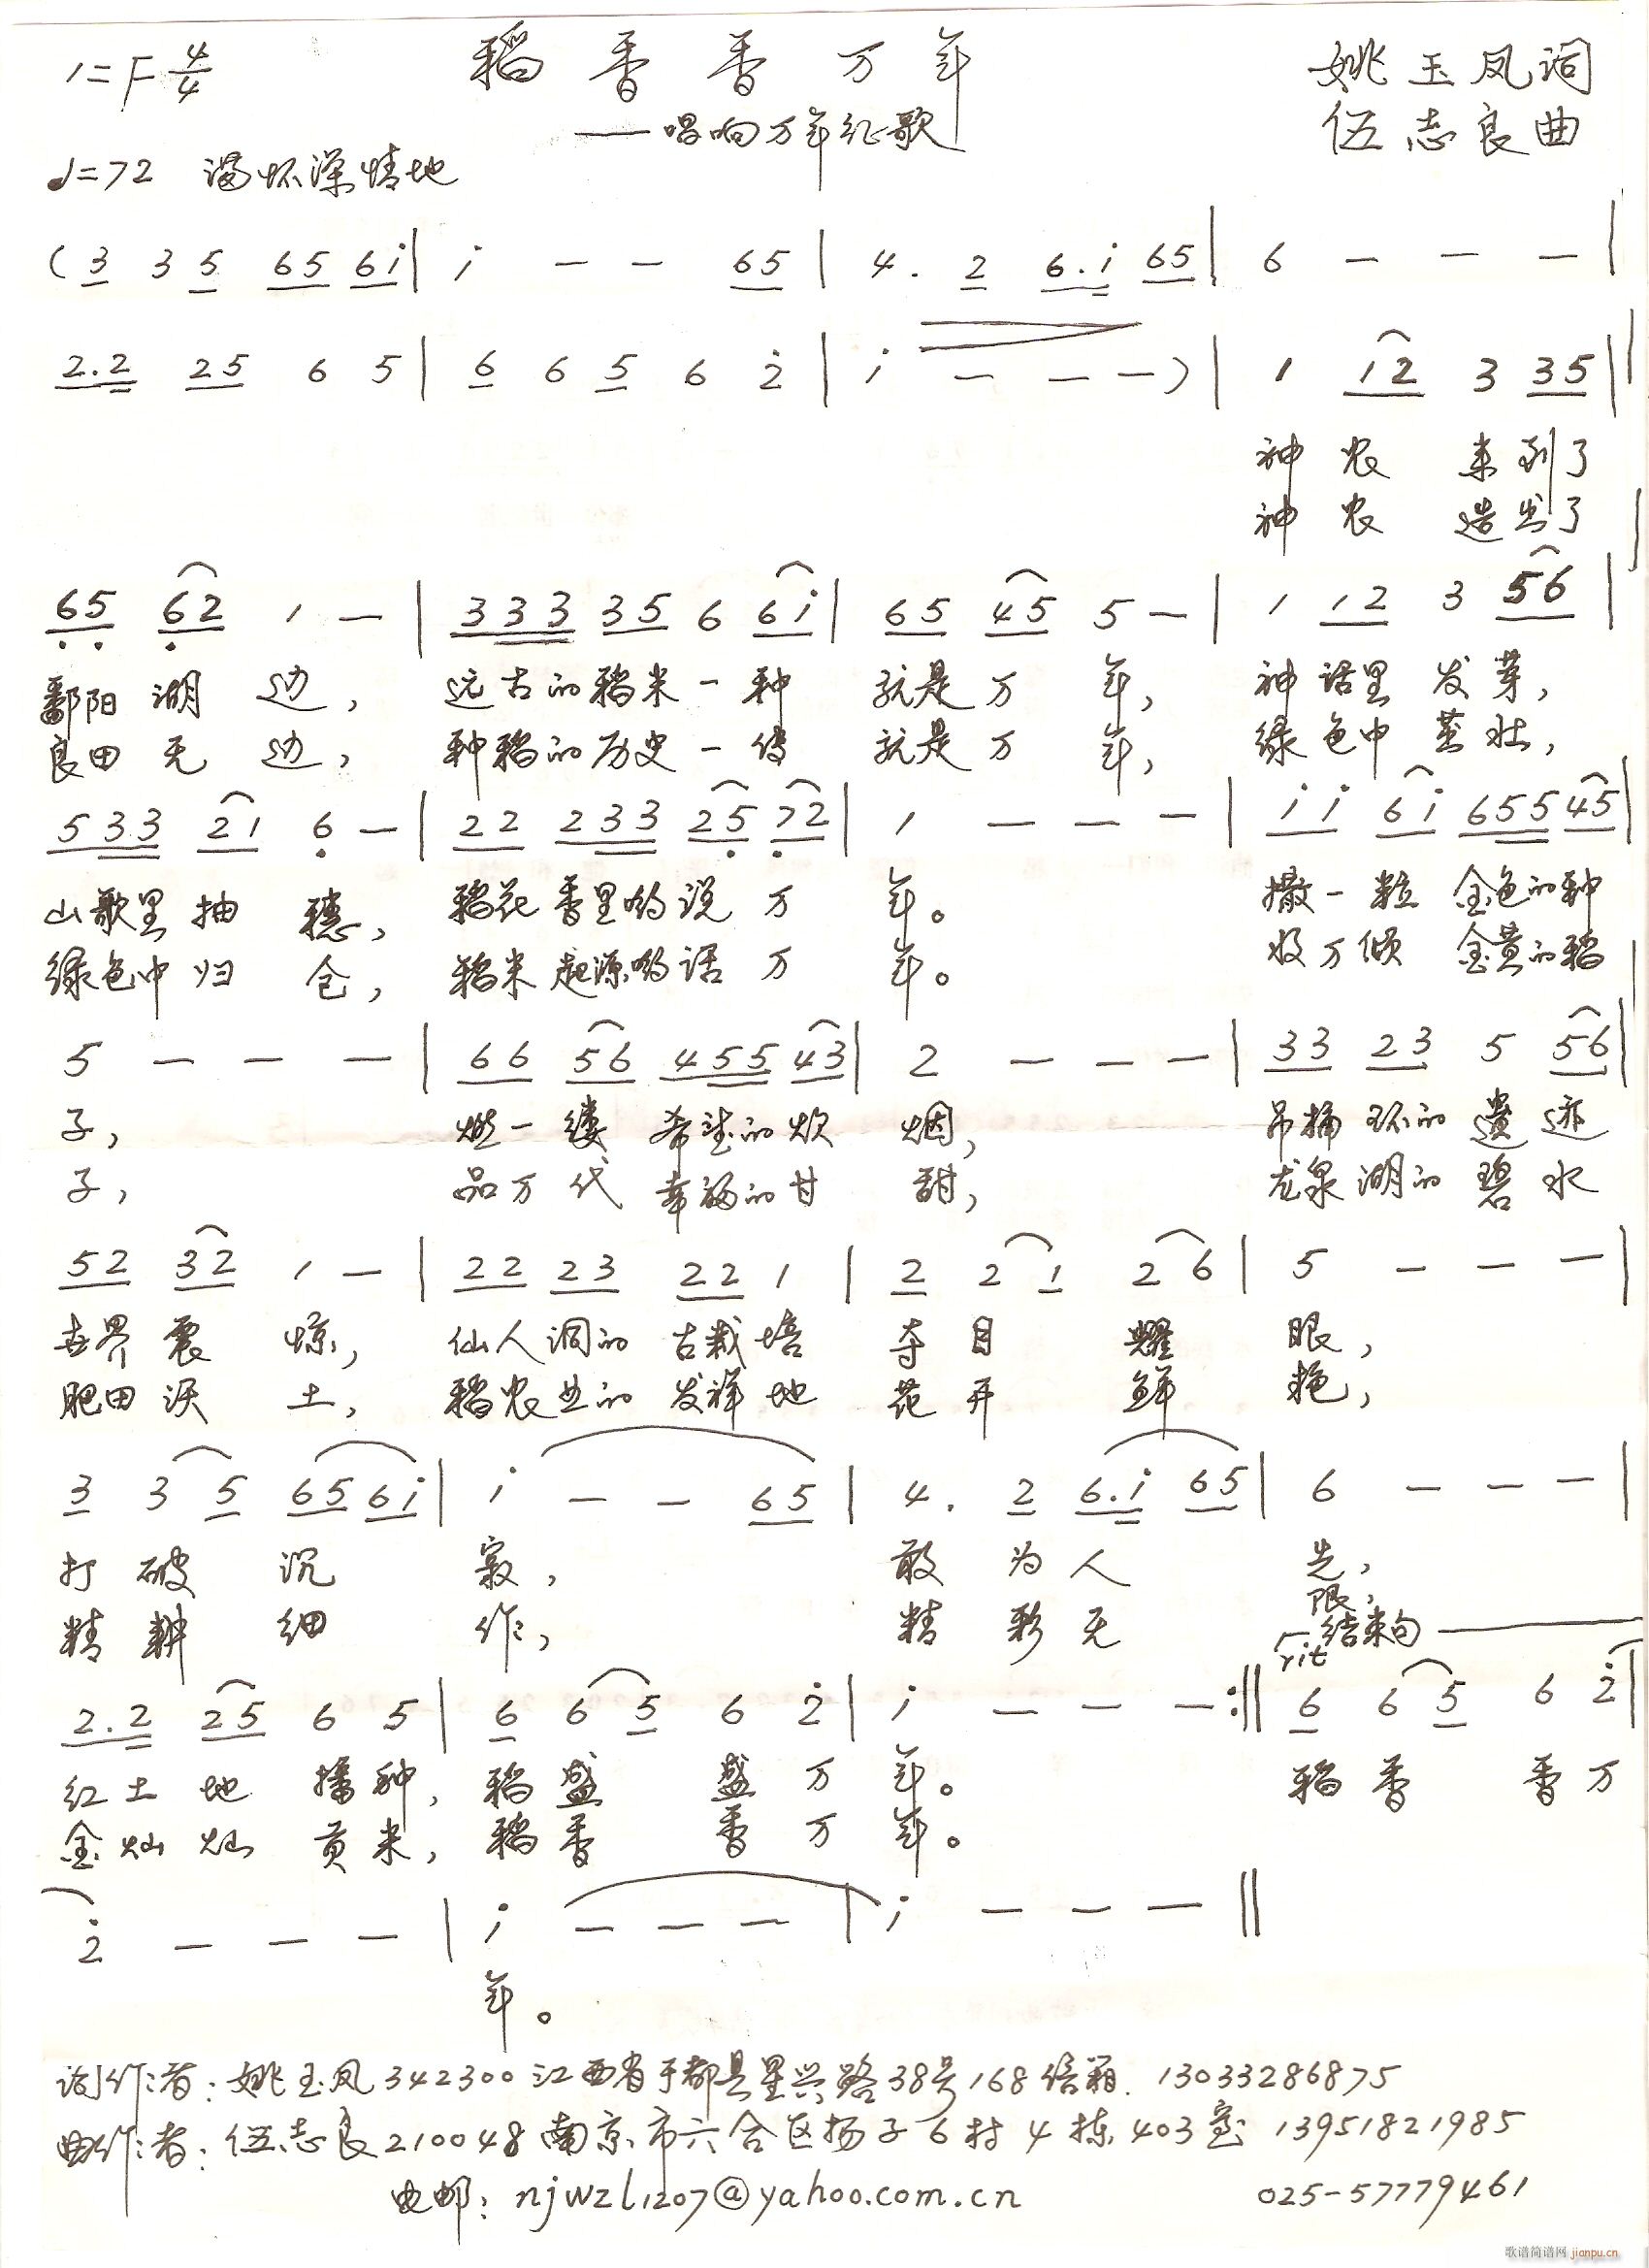 1=F 4/4 稻香香万年 姚玉凤词
——唱响万年征歌 伍志良曲
♩=72 满怀深情地
(3 3 5 65 6i | i - - 65 | 4. 2 6.i 65 | 6 - - - |
2.2 25 6 5 | 6 6 5 6 2 | i - - -) | 1 12 3 35 ||
神农 来到了
神农 造出了
65 62 1 - | 333 35 6 6i | 65 45 5 - | 1 12 3 56 |
鄱阳湖边, 远古的稻米一种 就是万年, 神话里发芽,
良田无边, 种稻的历史一传 就是万年, 绿色中茁壮,
533 21 6 - | 22 233 25 72 | 1 - - - | ii 6i 655 45 |
山歌里抽穗, 稻花香里哟说万 年。 撒一粒 金色的种
绿色中归仓, 稻米起源哟话万 年。 好万倾 金黄的稻
5 - - - | 66 56 455 43 | 2 - - - | 33 23 5 56 |
子, 燃一缕 希望的炊 烟, 吊桶环的遗迹
子, 品万代 幸福的甘 甜, 龙泉湖的碧水
52 32 1 - | 22 23 22 1 | 2 2 1 2 6 | 5 - - - |
世界震惊, 仙人洞的古栽培 夺目耀 眼,
肥田沃土, 稻农业的发祥地 花开鲜 艳,
3 3 5 65 6i | i - - 65 | 4. 2 6.i 65 | 6 - - - |
打破沉 寂, 敢为人 先,
精耕细 作, 精彩无 限,
rit 结束句
2.2 25 6 5 | 6 6 5 6 2 | i - - - :|| 6 6 5 6 2 |
红土地播种, 稻盛盛万 年。 稻香香万
金灿灿贡米, 稻香香万 年。
2 - - - | i - - - | i - - - ||
年。
词作者: 姚玉凤 342300 江西省于都县星兴路38号168信箱. 13033286875
曲作者: 伍志良 210048 南京市六合区扬子6村4栋403室 13951821985
电邮: njwzl1207@yahoo.com.cn 025-57779461
歌谱简谱网 jianpu.cn